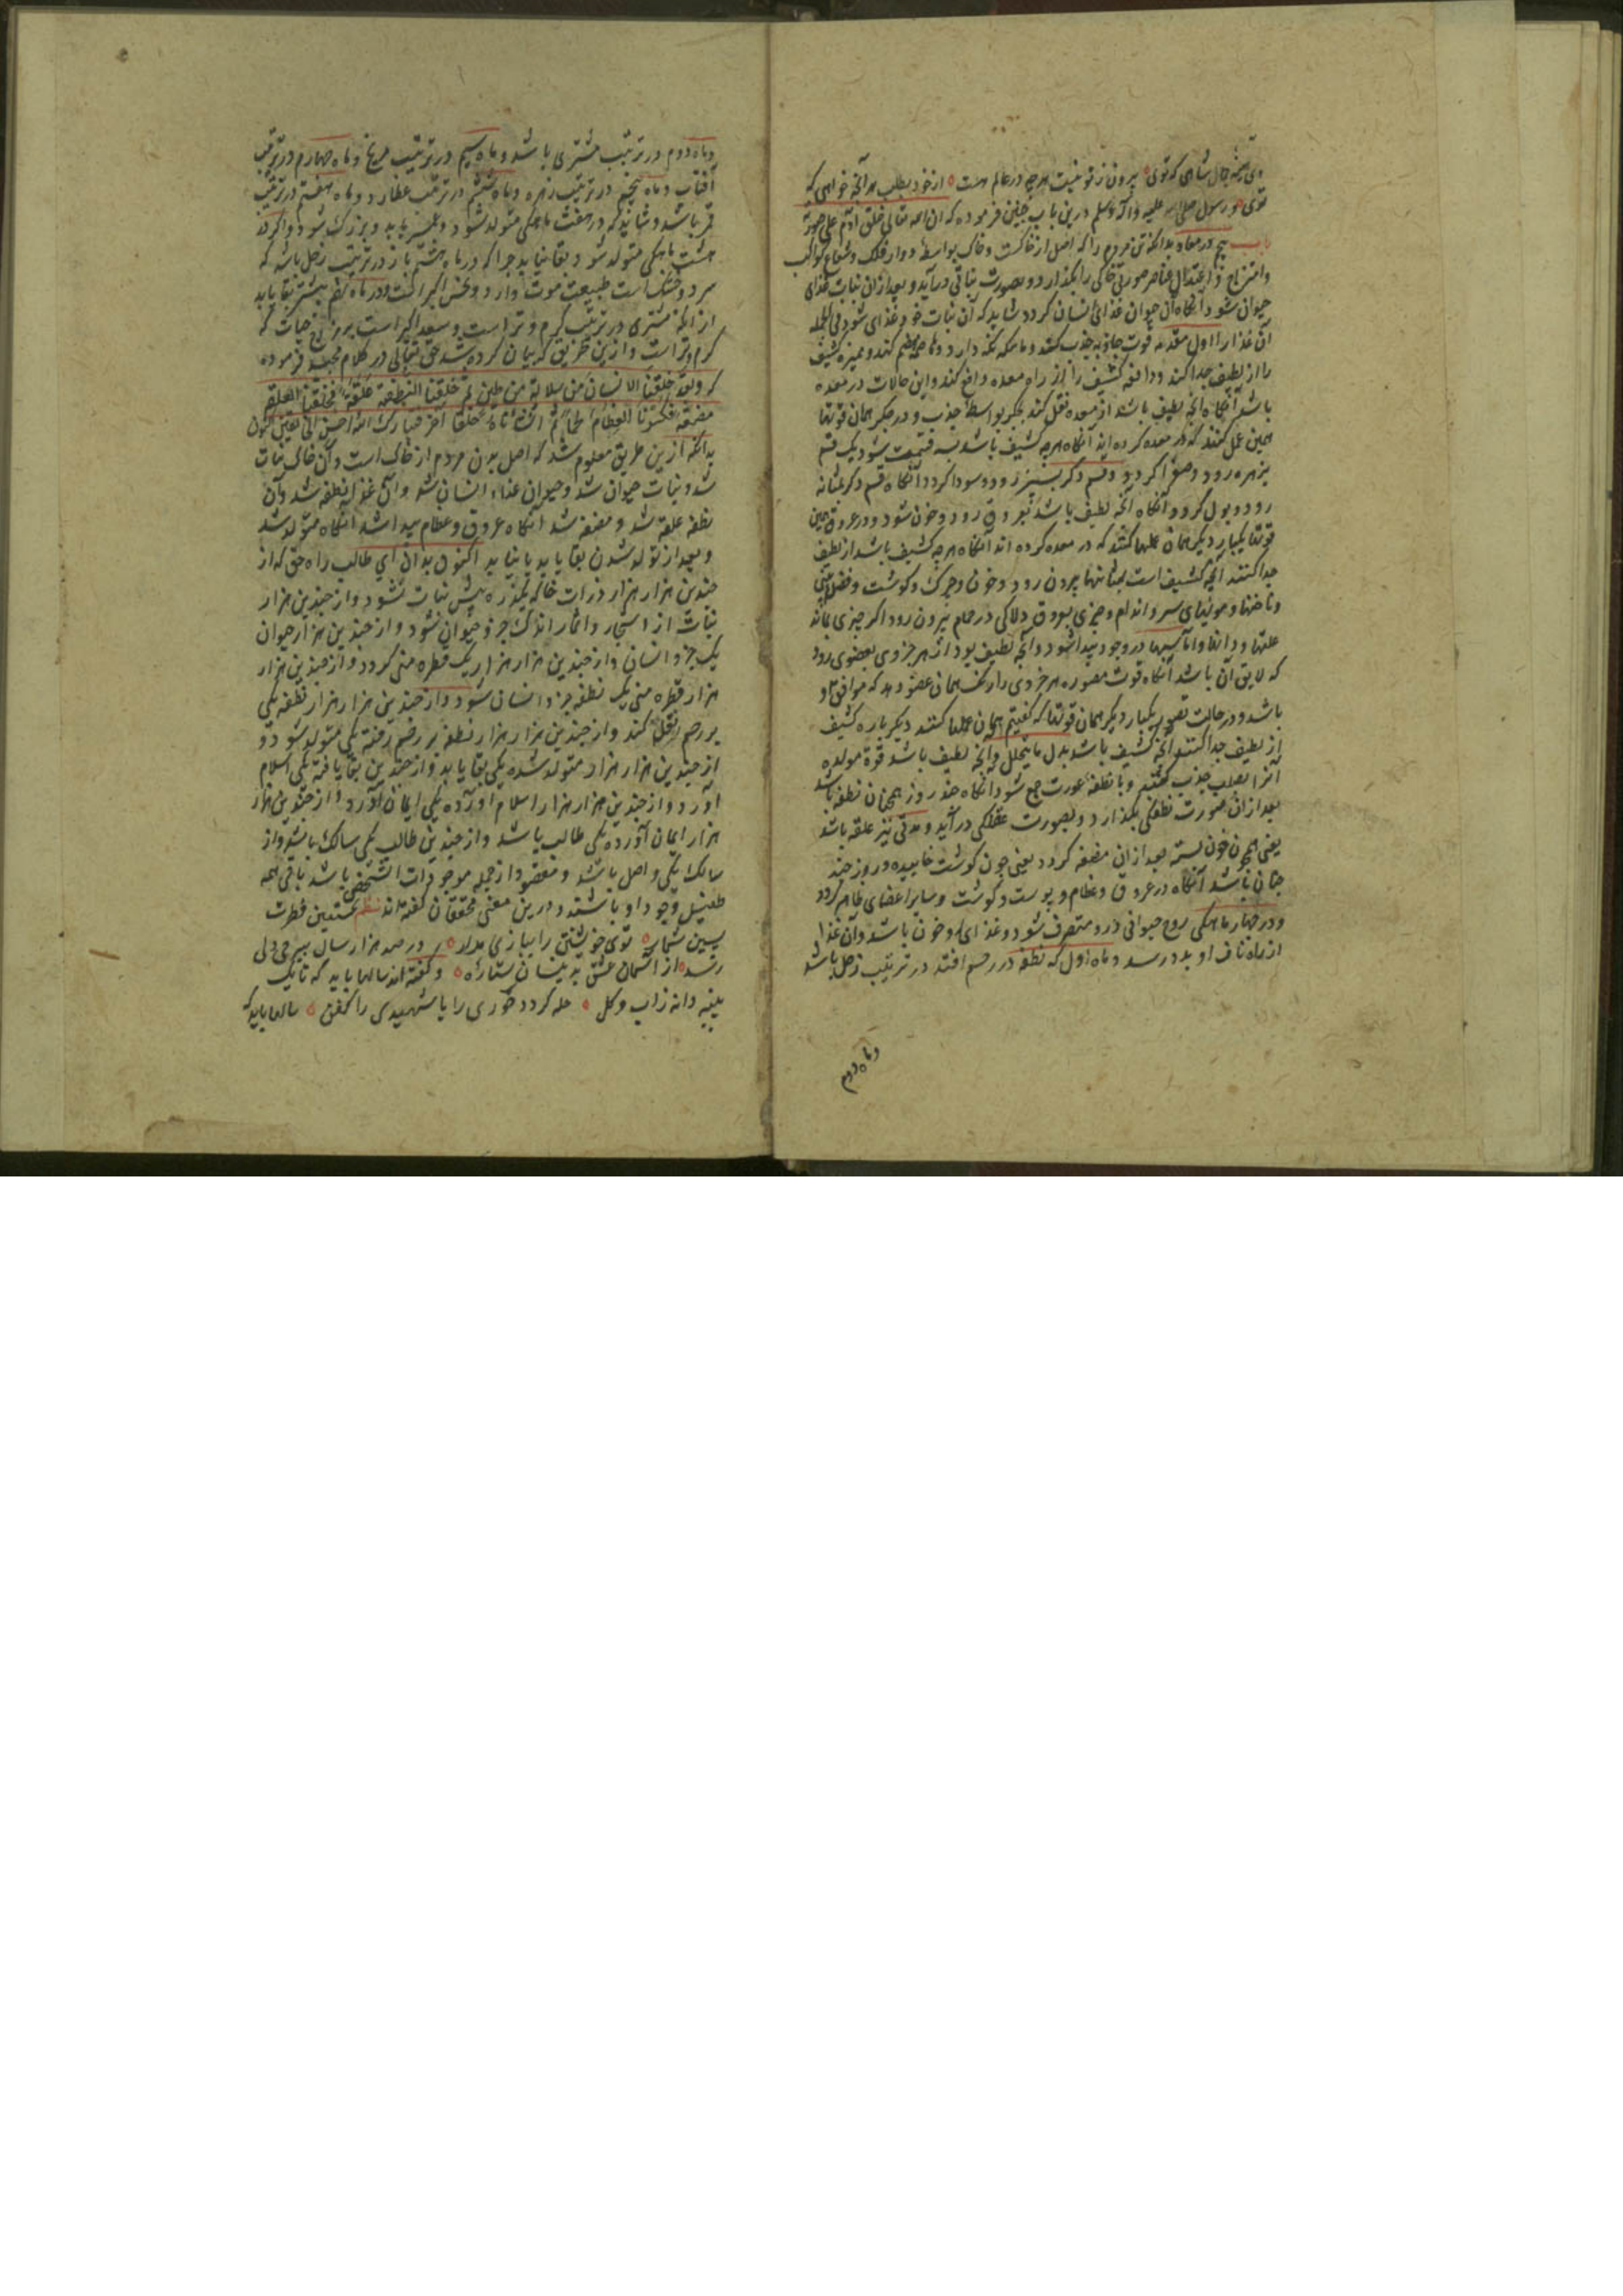 وی آینه جمال شاهی که توی بیرون ز تو نیست هرچه در عالم هست از خود بطلب هر آنچه خواهی که
توی و رسول صلی الله علیه وآله وسلم درین باب چنین فرموده که ان الله تعالی خلق آدم علی صورته
باب پنجم در معاد بدانکه تن مردم را که اصل از خاکست و خاک بواسطه دوار فلک و شعاع کواکب
وامتزاج و اعتدال عناصر صورتی خاکی را بگذارد و بصورت نباتی درآید و بعد ازان نبات غذای
حیوان شود و آنگاه آن حیوان غذای انسان کردد شاید که آن نبات خود غذای شود فی الجمله
آن غذا را اول مقدمه قوت جاذبه جذب کند و ماسکه نگه دارد و هاضمه هضم کند و ممیزه کثیف
را از لطیف جدا کند و دافعه کثیف را از راه معده دافع کند و این حالات در معده
باشد آنگاه آنچه لطیف باشد از معده نقل کند بجگر بواسطه جذب و در جگر همان قوتها
همین عمل کنند که در معده کرده اند آنگاه هرچه کثیف باشد بسه قسمت شود یک قسم
بزهره رود و صفرا کردد و قسم دکر بسپرز رود و سودا کردد آنگاه قسم دکر بمثانه
رود و بول کردد و آنگاه آنچه لطیف باشد بعروق رود و خون شود و در عروق همین
قوتها یکبار دیگر همان عملها کنند که در معده کرده اند آنگاه هرچه کثیف باشد از لطیف
جدا کنند آنچه کثیف است بمثانها بیرون رود و خون و چرک و کوشت و فضله بینی
وناخنها و مویهای سر و اندام و چیزی بعرق دلاکی در حمام بیرون رود اکر چیزی بماند
علتها و دانها و آماسیها در وجود پیدا شود و آنچه لطیف بود از هر جزوی بعضوی رود
که لایق آن باشد آنگاه قوت مصوره هر جزوی را رنگ همان عضو دهد که موافق او
باشد و در حالت تصویر یکبار دیگر همان قوتها که کفتیم همان عملها کنند دیگر باره کثیف
از لطیف جدا کنند آنچه کثیف باشد بدل ما یتحلل و آنچه لطیف باشد قوة مولده
آنرا بصلب جذب کند و با نطفه عورت جمع شود آنگاه چند روز همچنان نطفه باشد
بعد ازان صورت نطفکی بکذارد و بصورت علقکی درآید و مدتی نیز علقه باشد
یعنی همچون خون بسته بعد ازان مضغه کردد یعنی چون کوشت خاییده و روز چند
چنان باشد آنگاه در عروق و عظام و پوست و کوشت و سایر اعضای ظاهر کردد
و در چهار ماهکی روح حیوانی درو متصرف شود و غذای او خون باشد و آن غذا
از راه ناف او بدو رسد و ماه اول که نطفه در رحم افتد در ترتیب زحل باشد
وماه دوم
وماه دوم در ترتیب مشتری باشد و ماه سیم در ترتیب مریخ و ماه چهارم در ترتیب
آفتاب و ماه پنجم در ترتیب زهره و ماه ششم در ترتیب عطارد و ماه هفتم در ترتیب
قمر باشد و شاید که در هفت ماهکی متولد شود و عمر یابد و بزرک شود و اکر در
هشت ماهکی متولد شود بقا نیابد چرا که در ماه هشتم باز در ترتیب زحل باشد که
سرد و خشک است طبیعت موت دارد و نحس اکبر است و در ماه نهم بیشتر بقا یابد
از آنکه مشتری در ترتیب کرم و تر است و سعد اکبر است بر مزاج حیات که
کرم و تر است و ازین طریق که بیان کرده شد حق تعالی در کلام مجید فرموده
که ولقد خلقنا الانسان من سلالة من طین ثم خلقنا النطفة علقة فخلقنا العلقة
مضغة فکسونا العظام لحما ثم انشاناه خلقا آخر فتبارک الله احسن الخالقین اکنون
بدانکه ازین طریق معلوم شد که اصل بدن مردم از خاک است و آن خاک نبات
شد و نبات حیوان شد و حیوان غذاء انسان شد و آن غذا نطفه شد و آن
نطفه علقه شد و مضغه شد آنگاه عروق و عظام پیدا شد آنگاه متولد شد
و بعد از تولد شدن بقا یابد یا نیابد اکنون بدان ای طالب راه حق که از
چندین هزار هزار ذرات خاک یکذره بیش نبات نشود و از چندین هزار
نبات از اشجار و اثمار اندک جزو حیوان شود و از چندین هزار حیوان
یک جزو انسان و از چندین هزار هزار یک قطره منی کردد و از چندین هزار
هزار قطره منی یک نطفه جزو انسان شود و از چندین هزار هزار نطفه یکی
بر رحم نقل کند و از چندین هزار هزار نطفه بر رحم رفته یکی متولد شود و
از چندین هزار هزار متولد شده یکی بقا یابد و از چندین بقا یافته یکی اسلام
آورد و از چندین هزار هزار اسلام آورده یکی ایمان آورد و از چندین هزار
هزار ایمان آورده یکی طالب باشد و از چندین طالب یکی سالک باشد و از
سالک یکی واصل باشد و مقصود از جمله موجودات آن شخص باشد باقی همه
طفیل وجود او باشند و درین معنی محققان کفته اند نظم نخستین فطرت
پسین شمار توی خویشتن را ببازی مدار در صد هزار سال ببرج دلی
رسد از آسمان عشق بدینسان ستاره و کفته اند سالها باید که تا یک
پنبه دانه ز آب و کل حله کردد حوری را یا شهیدی را کفن سالها باید که